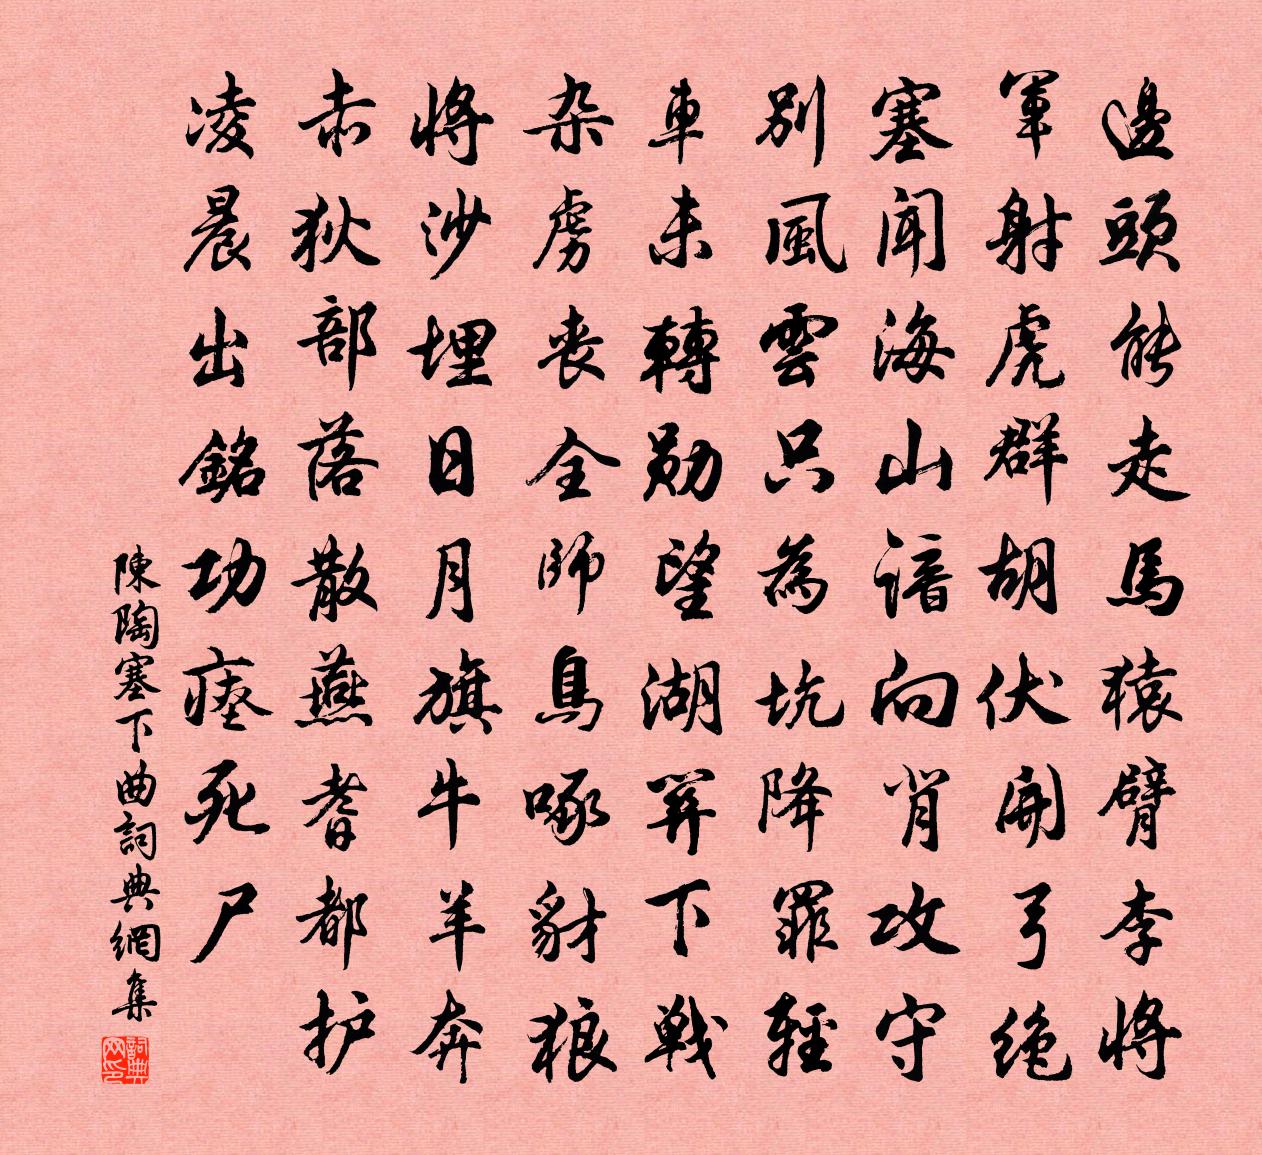 邊頭能走馬猿臂李將
軍射虎群胡伏開弓絕
塞聞海山諳向背攻守
別風雲只為坑降罪輕
車未轉勛望湖關下戰
杂虜丧全師鳥啄豺狼
將沙埋日月旗牛羊奔
赤狄部落散燕耆都护
凌晨出銘功瘞死尸
陳陶塞下曲詞典網集
詞典网印